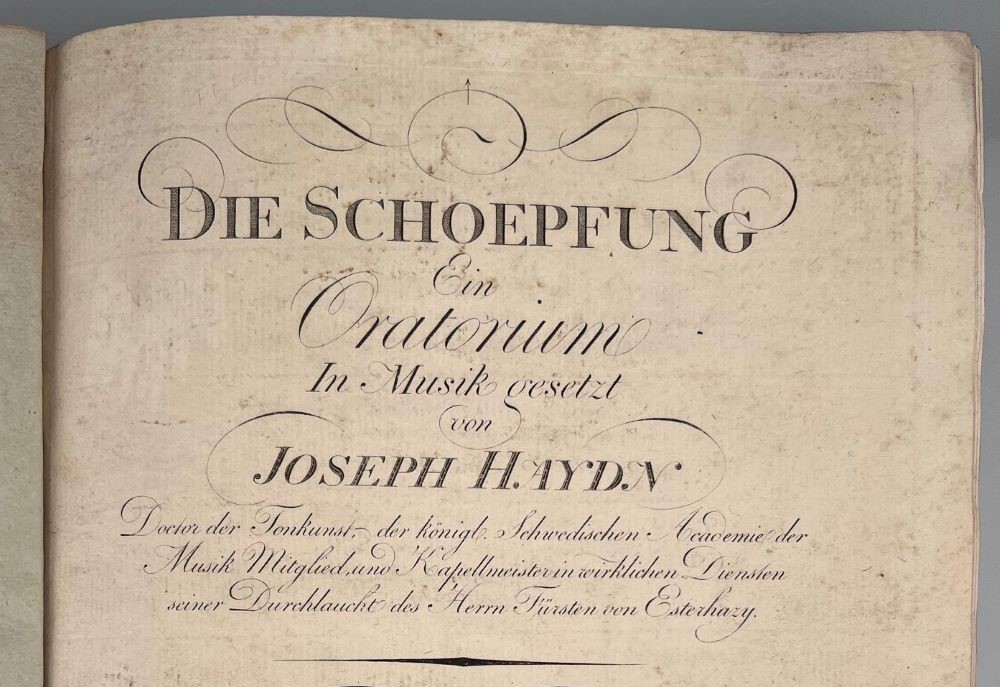 DIE SCHOEPFUNG
Ein
Oratorium
In Musik gesetzt
von
JOSEPH HAYDN
Doctor der Tonkunst, der königl. Schwedischen Academie der
Musik Mitglied, und Kapellmeister in wirklichen Diensten
seiner Durchlaucht des Herrn Fürsten von Esterhazy.